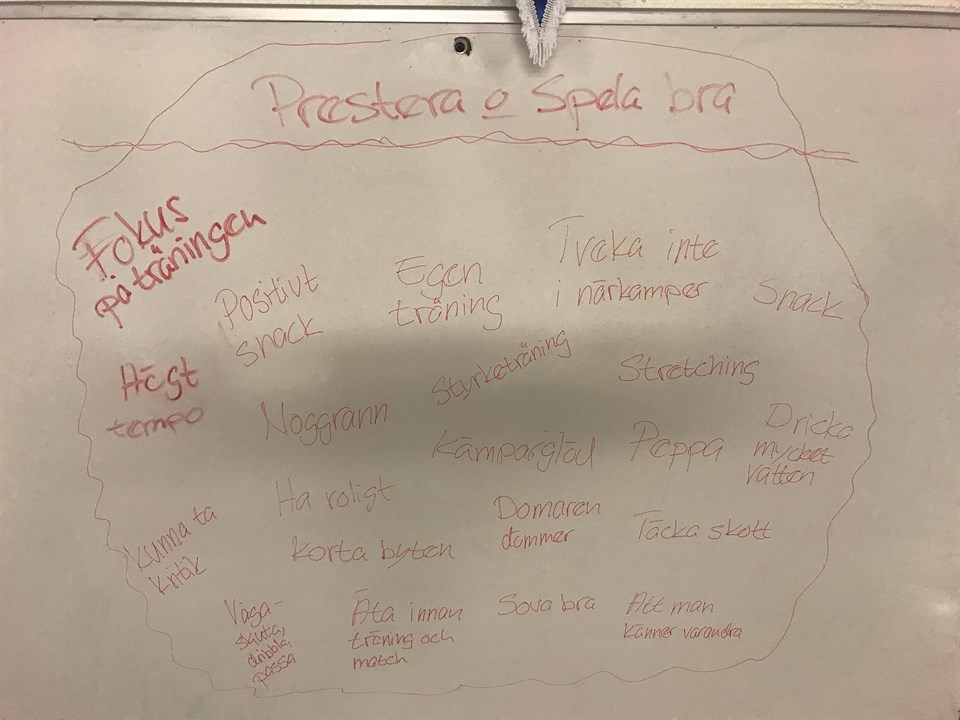 Prestera o Spela bra
Fokus
på träningen
Positivt
snack
Egen
träning
Tveka inte
i närkamper
Snack
Högt
tempo
Noggrann
Styrketräning
Stretching
Kämparglöd
Peppa
Dricka
mycket
vatten
Ha roligt
Kunna ta
kritik
Korta byten
Domaren
dömmer
Täcka skott
Våga
skjuta,
dribbla,
passa
Äta innan
träning och
match
Sova bra
Att man
känner varandra